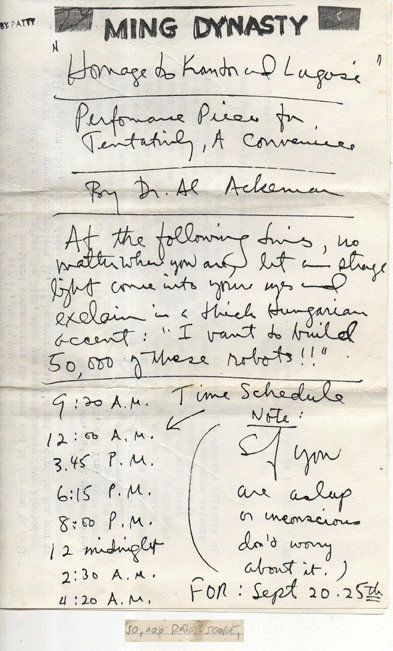 BY PATTY
MING DYNASTY
"Homage to Kantor and Lugosi"
Performance Piece for
Tentatively, A Convenience
By Dr. Al Ackerman
At the following times, no
matter where you are, let a strange
light come into your eyes and
exclaim in a thick Hungarian
accent: "I vant to build
50,000 of these robots!!"
9:20 A.M. Time Schedule
12:00 A.M.
3.45 P.M.
6:15 P.M.
8:00 P.M.
12 midnight
2:30 A.M.
4:20 A.M.
Note:
(If you
are asleep
or unconscious
don't worry
about it.)
FOR: Sept 20.25th
50,000 ROBOT SCORE,